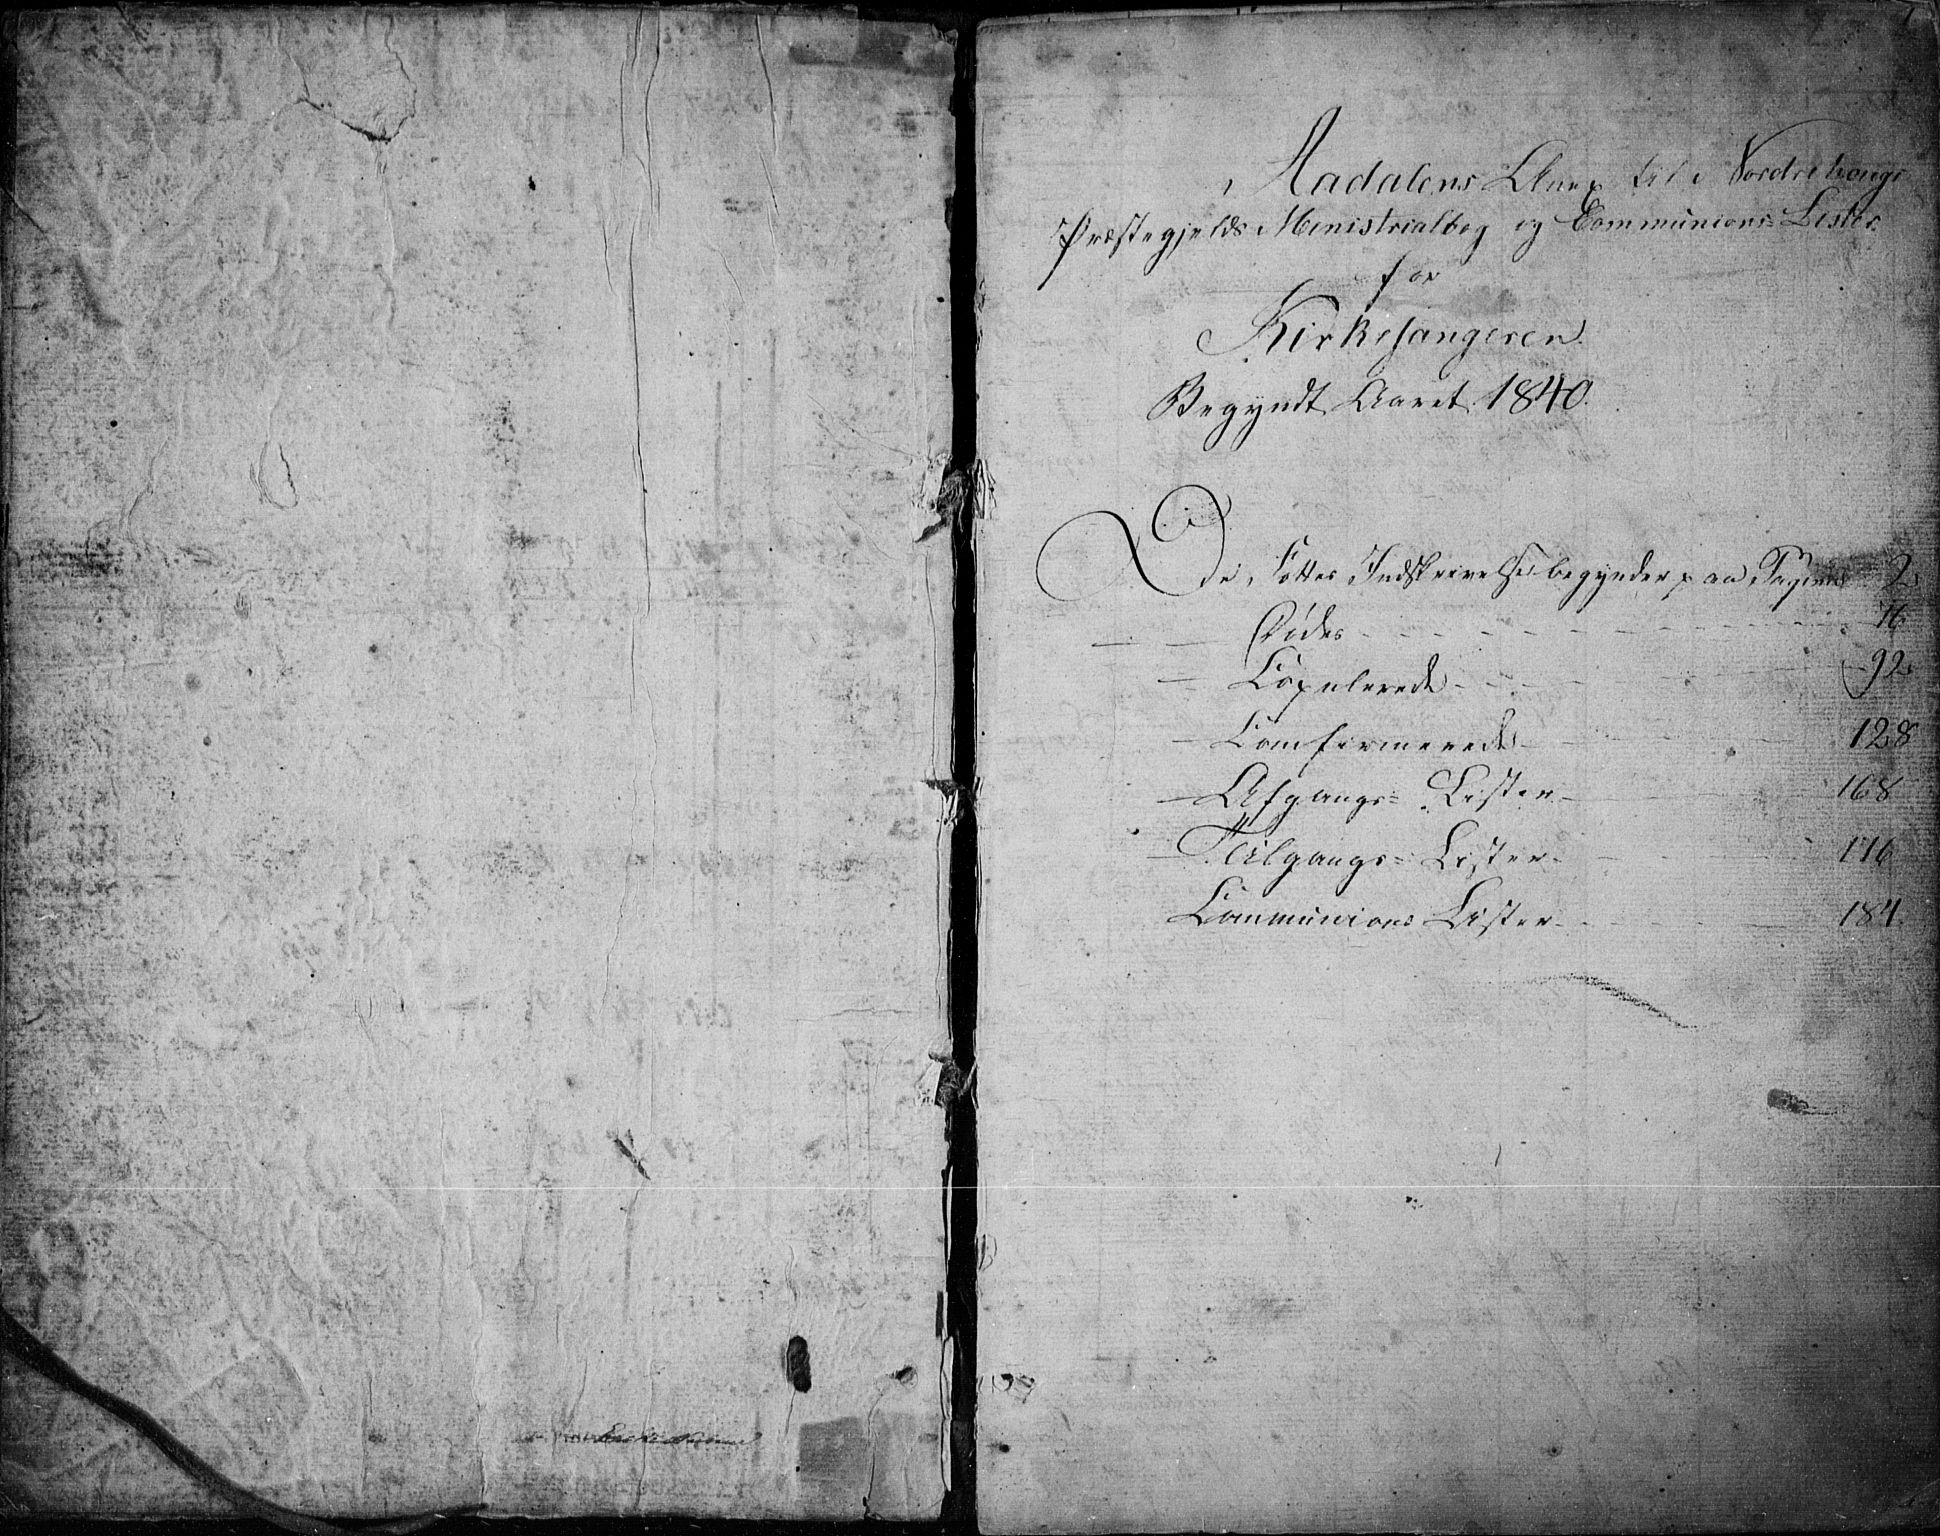 1
Aadalens Anex til Nordrehougs
Præstegjelds Ministrialbog og Communions= Lister
for
Kirkesangeren.
Begyndt Aaret 1840.
De Føttes Indskrivelse begynder paa Pagina 2
— — Dødes - - - - - - 76
— Copulerede - - - - 92
— Comfirmerede - - - 128
— Afgangs= Lister - - - 168
— Tilgangs= Lister - - - 176
Communions Lister - - - 184